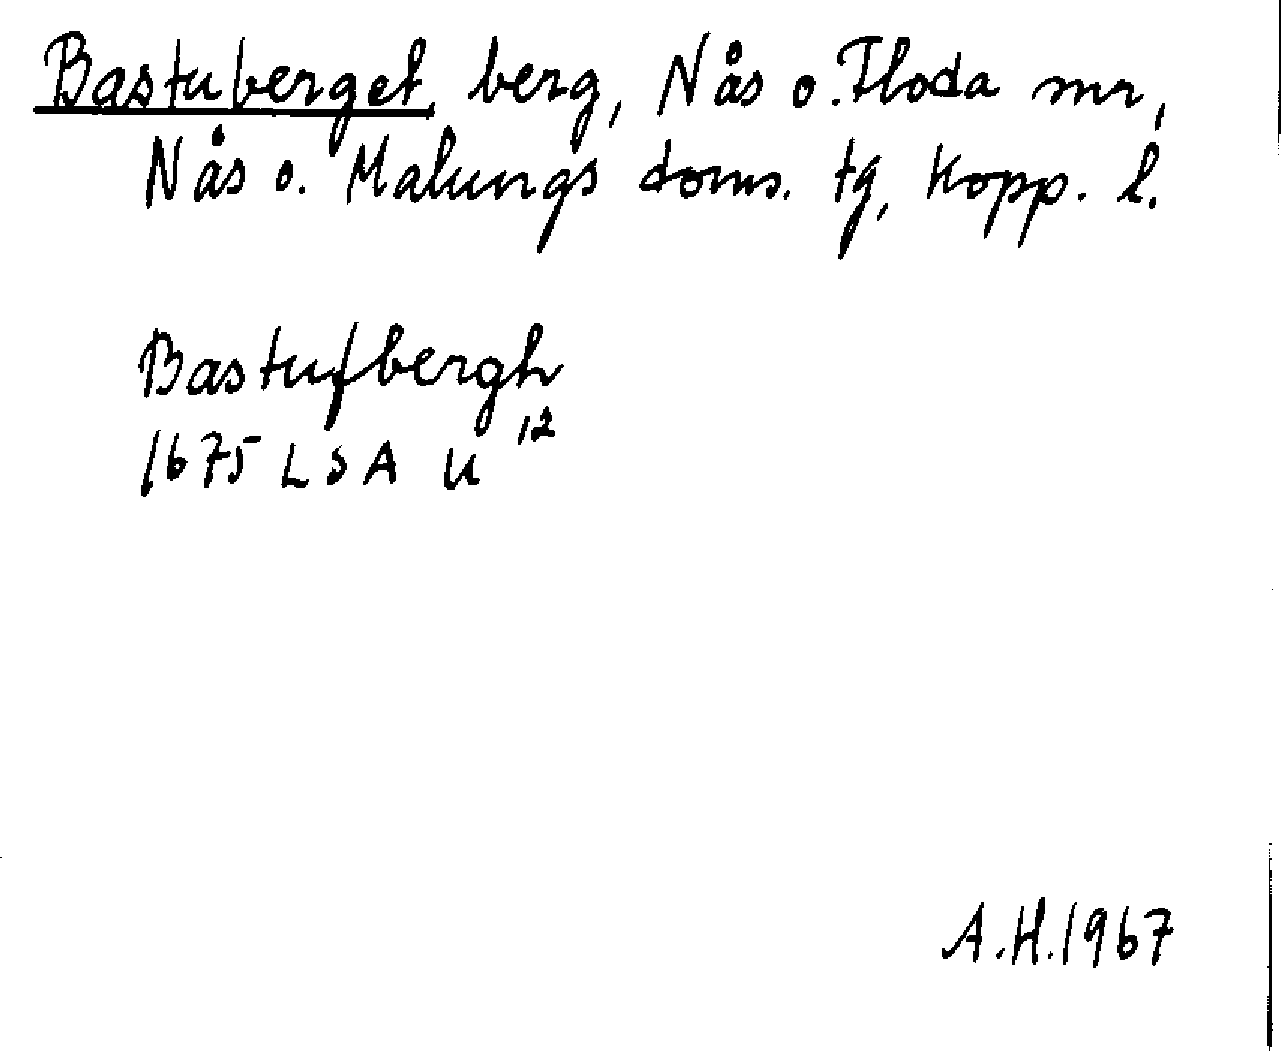 Bastuberget, berg, Nås o. Floda mr,
Nås o. Malungs doms. tg, Kopp. l.
Bastufbergh
1675 LSA U 12
A.H. 1967